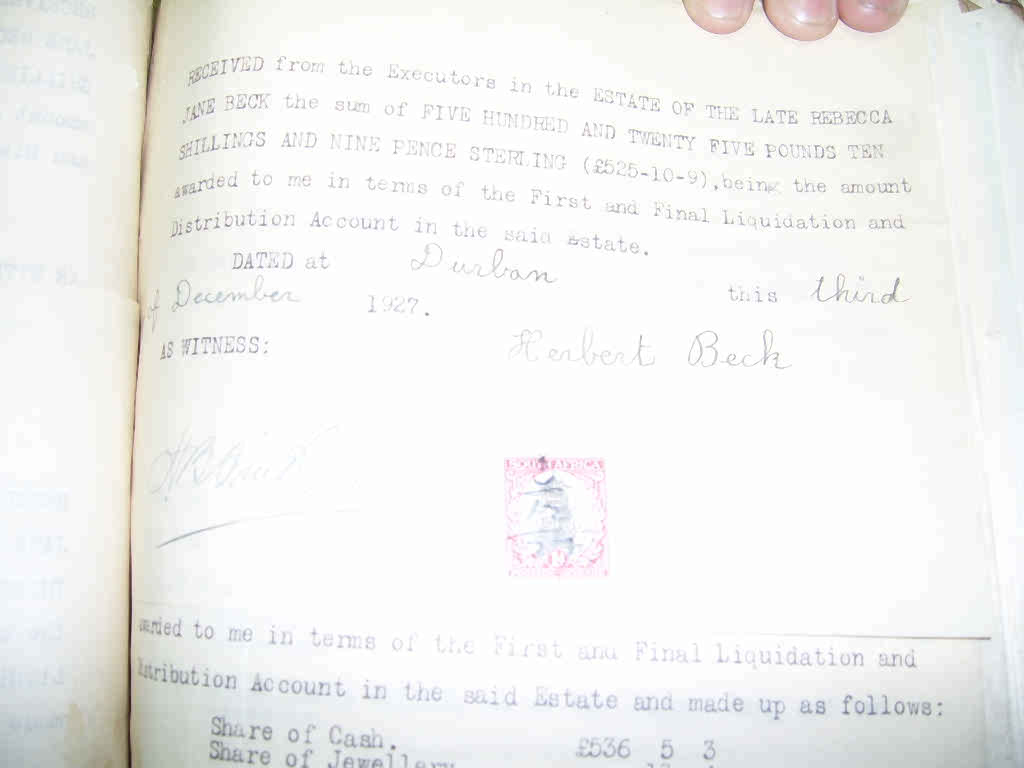 RECEIVED from the Executors in the ESTATE OF THE LATE REBECCA
JANE BECK the sum of FIVE HUNDRED AND TWENTY FIVE POUNDS TEN
SHILLINGS AND NINE PENCE STERLING (£525-10-9), being the amount
awarded to me in terms of the First and Final Liquidation and
Distribution Account in the said Estate.
DATED at Durban this third
of December 1927.
AS WITNESS: Herbert Beck
SOUTH AFRICA
awarded to me in terms of the First and Final Liquidation and
Distribution Account in the said Estate and made up as follows:
Share of Cash. £536 5 3
Share of Jewellery